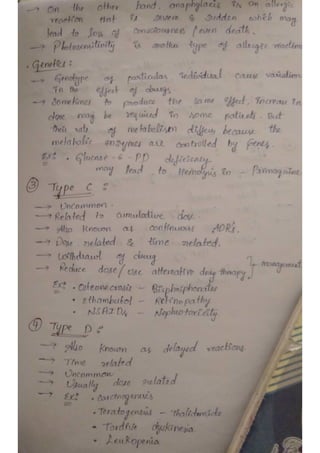 → On the other hand, anaphylaxis is an allergic
reaction that is severe & sudden which may
lead to loss of consciousness / even death.
→ Photosensitivity is another type of allergic reaction
• Genetics :
→ Genotype of particular individual cause variation
in the effect of drugs
→ Sometimes to produce the same effect, Increase in
dose may be required in some patients. But
their rate of metabolism differs because the
metabolic enzymes are controlled by Genes.
Ex: • Glucose-6-PD deficiency
may lead to Hemolysis in - Primaquine
③ Type C :
→ Uncommon.
→ Related to cumulative dose.
→ Also known as continuous ADRs.
→ Dose related & time related.
→ Withdrawl of drug
→ Reduce dose / use alternative drug therapy. } management
Ex: • Osteonecrosis - Bisphosphonates
• Ethambutol - Retinopathy
• NSAIDs - Nephrotoxicity
④ Type D :
→ Also known as delayed reactions
→ Time related
→ Uncommon
→ Usually dose related
→ Ex: • Carcinogenesis
• Teratogenesis - Thalidomide
• Tardive dyskinesia
• Leukopenia